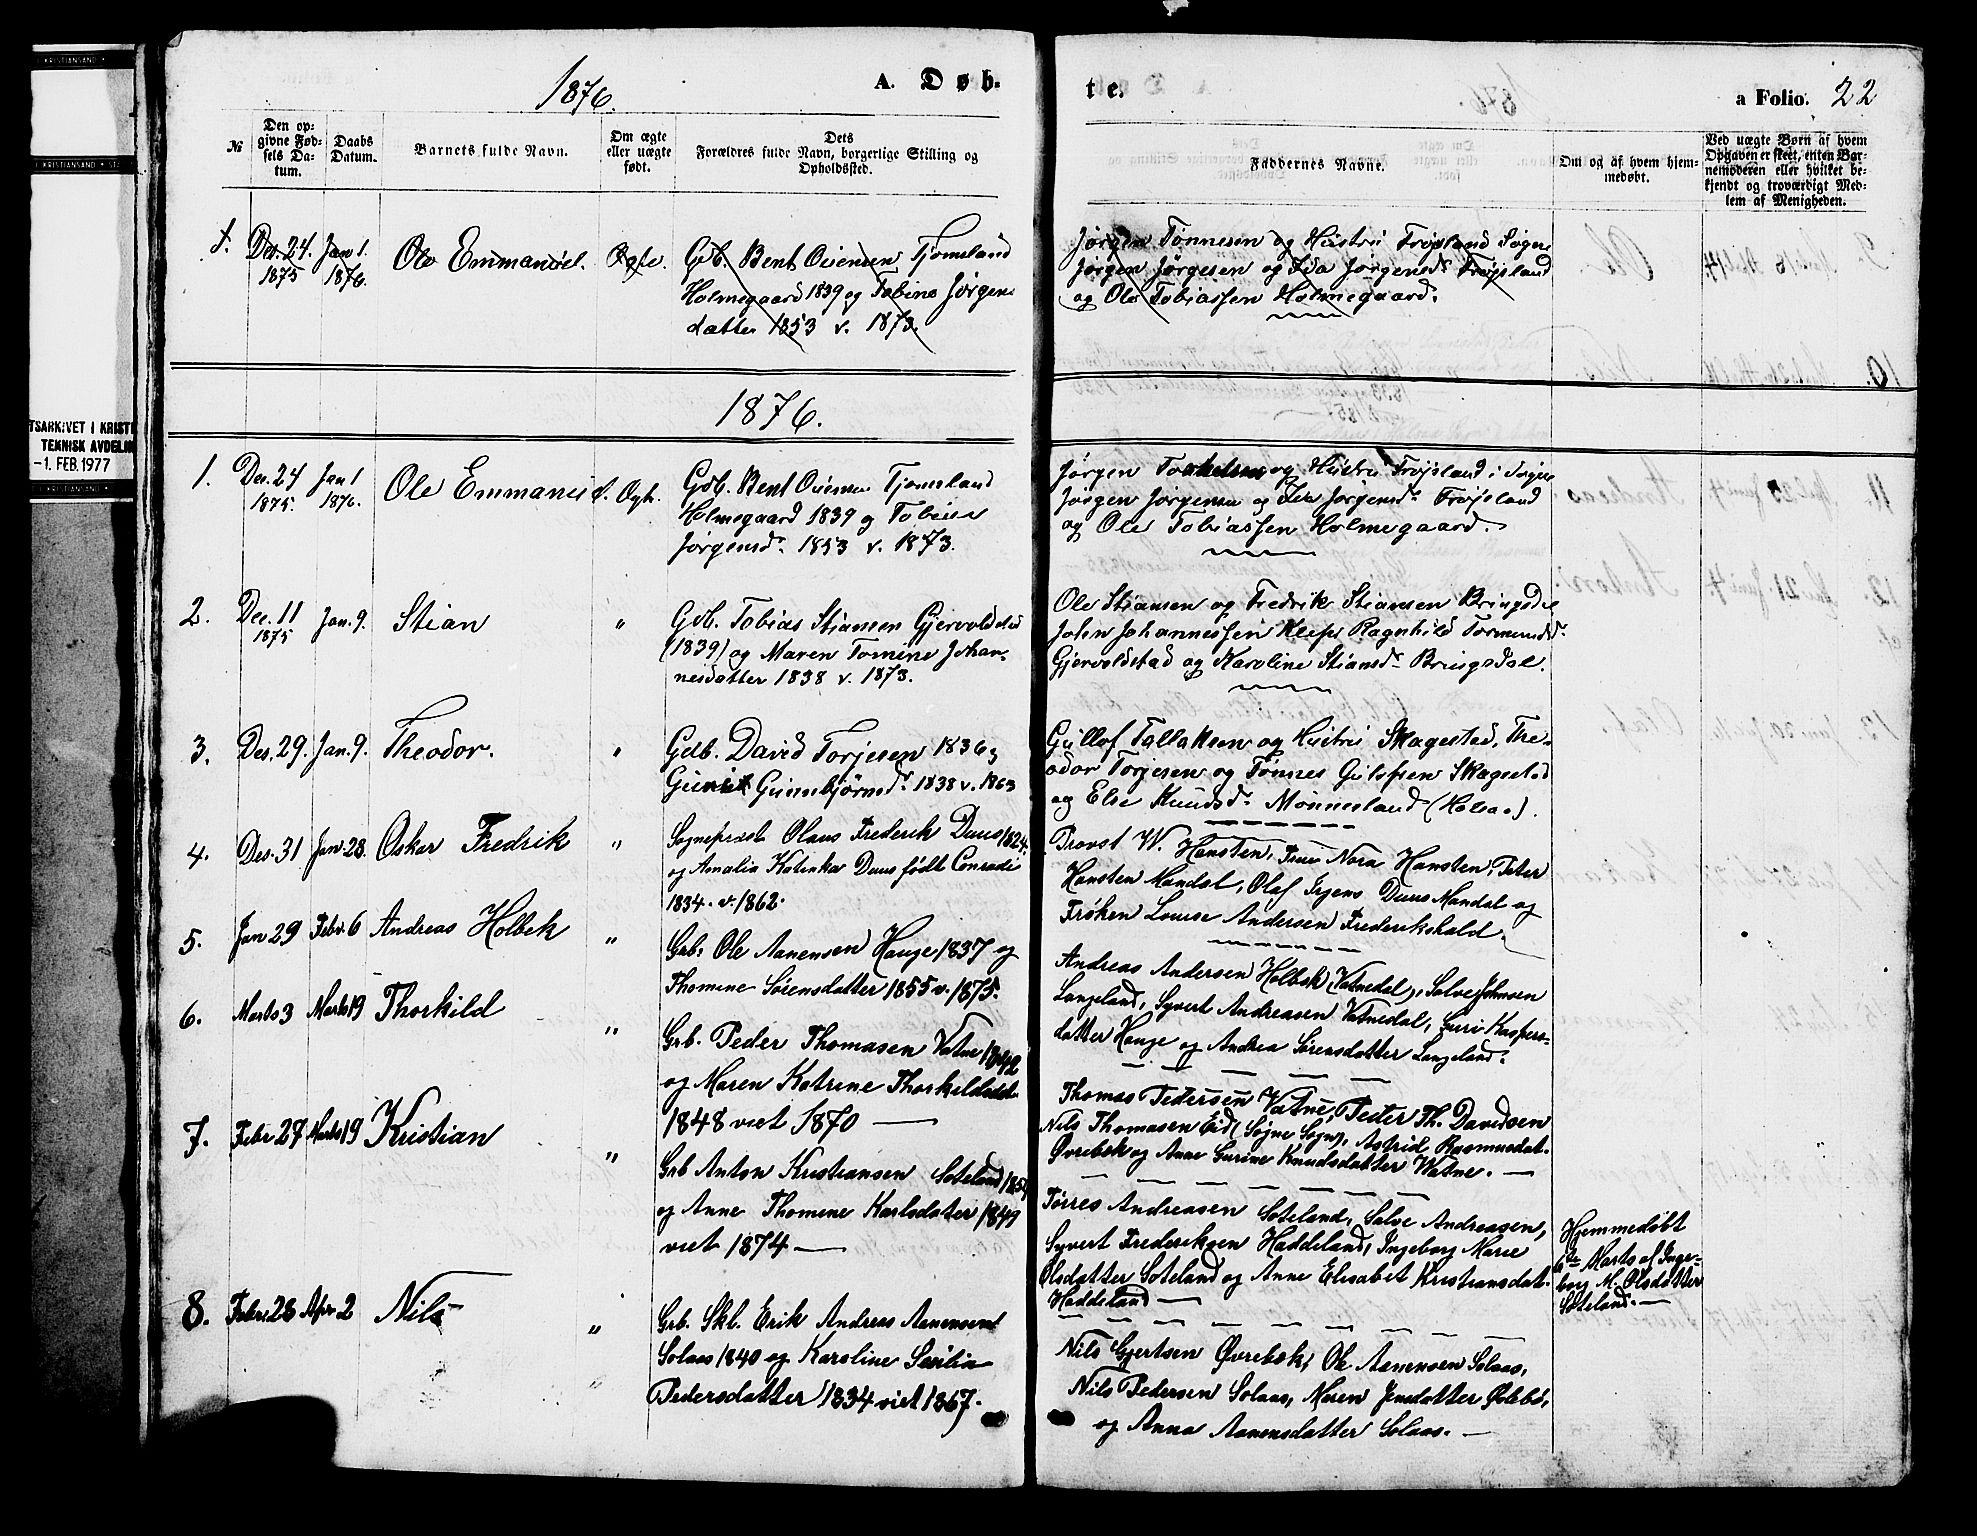 1876.
A. Døb-
te.
a Folio. 22
№
Den op-
givne Fød-
sels Da-
tum.
Daabs
Datum.
Barnets fulde Navn.
Om ægte
eller uægte
født.
Dets
Forældres fulde Navn, borgerlige Stilling og
Opholdssted.
Faddernes Navne.
Om og af hvem hjem-
medøbt.
Ved uægte Børn af hvem
Opgaven er skeet, enten Bar-
nemoderen eller hvilket be-
kjendt og troværdigt Med-
lem af Menigheden.
1. Des. 24 1875 Jan 1. 1876. Ole Emmanuel. Ægte.
Gdb. Bent Osiensen Tjomsland
Holmegaard 1839 og Tobine Jørgens
datter 1853 v. 1873.
Jørgen Tønnesen og Hustru Trøjsland Søgne
Jørgen Jørgesen og Ida Jørgensdr Trøjsland
og Ole Tobiassen Holmegaard.
1876.
1. Des. 24 1875. Jan 1 1876. Ole Emmanuel. Ægte.
Gdb. Bent Osiensen Tjomsland
Holmegaard 1839 og Tobine
Jørgensdr. 1853 v. 1873.
Jørgen og Hustru Trøjsland i Søgne
Jørgen Jørgensen og Ida Jørgensdr Trøjsland
og Ole Tobiassen Holmegaard.
2. Dec. 11 1875 Jan. 9. Stian "
Gdb. Tobias Stiansen Gjervoldstad
(1839) og Maren Tomine Johan-
nesdatter 1838 v. 1873.
Ole Stiansen og Fredrik Stiansen Bringsdal
John Johannessen Kleps Ragnhild Tormundsdr
Gjervoldstad og Karoline Stiansdr Bringsdal.
3. Des. 29. Jan. 9. Theodor. "
Gdb. David Torjesen 1836 og
Gunbjørnsdr. 1838 v. 1863
Gullof Tallaksen og Hustru Skagestad, The-
odor Torjesen og Tønnes Gulofsen Skagestad
og Else Knudsdr Monnesland (Holsaa).
4. Des. 31 Jan. 23. Oskar Fredrik "
Sognepræst Olaus Frederik Duus 1824.
og Amalia Katinka Duus født Conradi
1834. v. 1862.
Provst W. Hansten, Frue Nora Hansten, Peter
Hansten Mandal, Olaf Irgens Duus Mandal og
Frøken Louise Andersen Frederikshald.
5. Jan 29 Febr. 6 Andreas Holbek "
Grb. Ole Aanensen Hauge 1837 og
Thomine Sørensdatter 1855 v. 1875.
Andreas Andersen Holbek (Vatnedal), Salve Johnsen
Langeland, Syvert Andreasen Vatnedal, Guri Kaspers-
datter Hauge og Andrea Sørensdatter Langeland.
6. Marts 3 Marts 19 Thorkild "
Grb. Peder Thomasen Vatne 1842
og Maren Katrine Thorkildsdat.
1848 viet 1870 —
Thomas Pedersen Vatne, Peder Th. Davidsen
Nils Thomasen Eid (Søgne Sogn), Astrid Rasmusdat.
Øvrebøk og Anne Gurine Knudsdatter Vatne. —
7. Febr 27 Marts 19 Kristian "
Grb Anton Kristiansen Søteland 1854
og Anne Thomine Karlsdatter 1849
viet 1874 —
Tørres Andreasen Søteland, Salve Andreasen,
Syvert Frederiksen Haddeland, Ingeborg Marie
Olsdatter Søteland og Anne Elisabet Kristiansdat.
Haddeland —
Hjemmedøbt
6te Marts af Inge-
borg M. Olsdatter
Søteland. —
8. Febr. 28 Apr 2 Nils "
Grb. Skl. Erik Andreas Aanensen
Solaas 1840 og Karoline Sesilia
Pedersdatter 1834 viet 1867.
Nils Gjertsen Øvrebøk, Ole Aanensen Solaas,
Nils Pedersen Solaas, Maren Jensdatter Øvlebø,
og Anna Aanensdatter Solaas. —
KRISTIANSAND
I KRISTIANSAND • ST
TSARKIVET I KRISTI
TEKNISK AVDELIN
-1. FEB. 1977
KRISTIANSAND